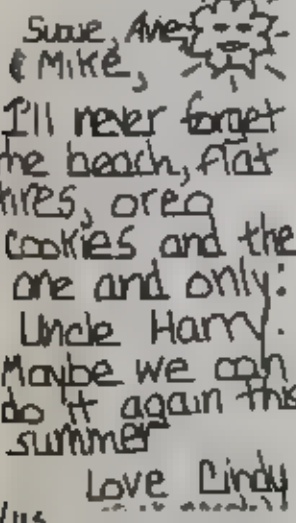 Suzie, Ave
& Mike,
I'll never forget
the beach, flat
tires, oreo
cookies and the
one and only:
Uncle Harry.
Maybe we can
do it again this
summer
Love Cindy